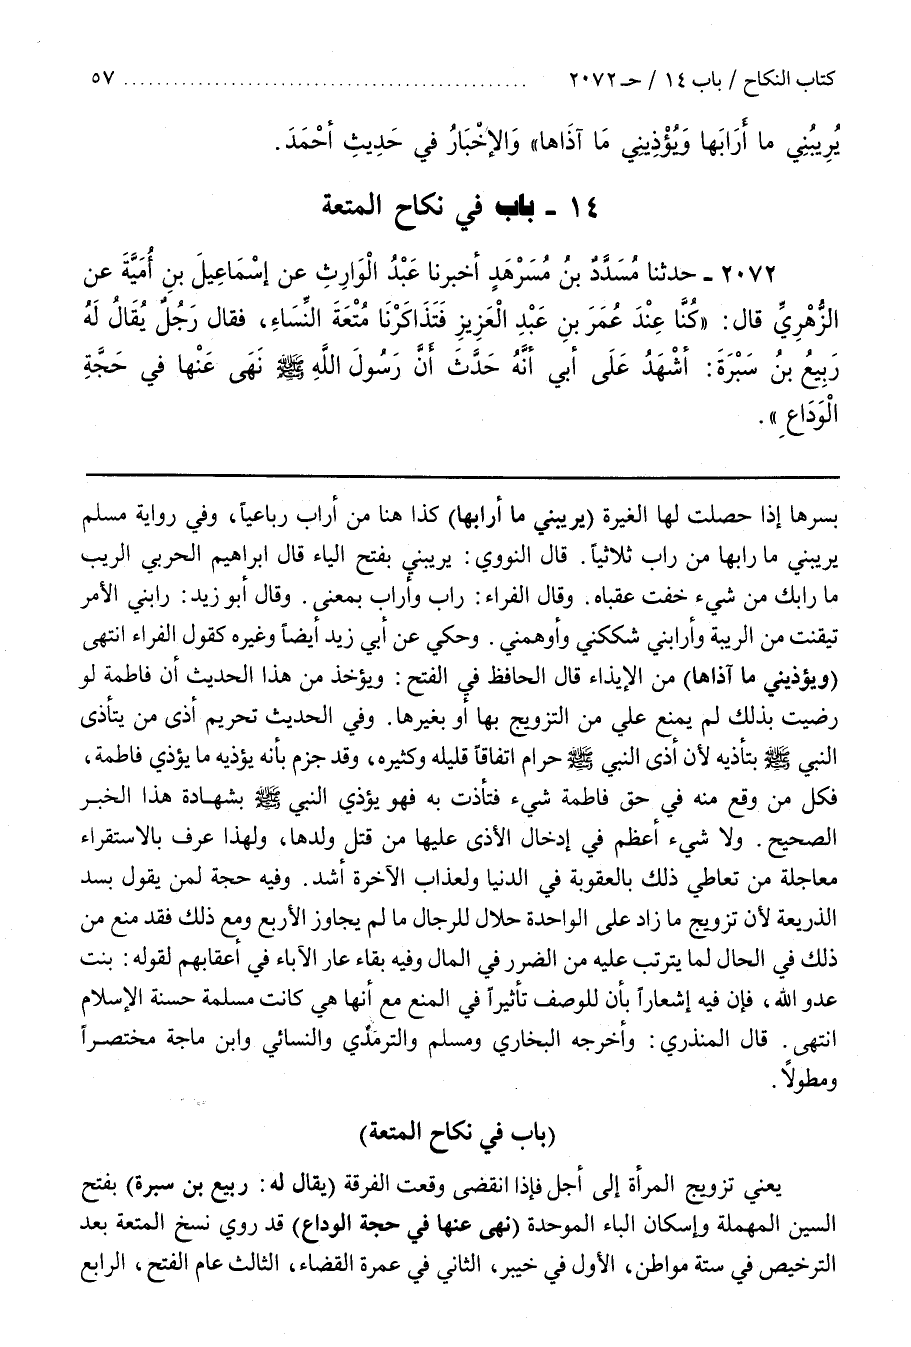 كتاب النكاح / باب ١٤ / حـ ٢٠٧٢ ................................................ ٥٧
يُرِيبُنِي ما أَرَابَها وَيُؤْذِينِي مَا آذَاها» وَالإخْبَارُ في حَدِيثِ أَحْمَدَ.
١٤ ـ باب في نكاح المتعة
٢٠٧٢ ـ حدثنا مُسَدَّدُ بنُ مُسَرْهَدٍ أخبرنا عَبْدُ الْوَارِثِ عن إسْمَاعِيلَ بنِ أُمَيَّةَ عن
الزُّهْرِيِّ قال: «كُنَّا عِنْدَ عُمَرَ بنِ عَبْدِ الْعَزِيزِ فَتَذَاكَرْنَا مُتْعَةَ النِّسَاءِ، فقال رَجُلٌ يُقَالُ لَهُ
رَبِيعُ بنُ سَبْرَةَ: أَشْهَدُ عَلَى أبي أنَّهُ حَدَّثَ أَنَّ رَسُولَ اللَّهِ ﷺ نَهَى عَنْها في حَجَّةِ
الْوَدَاعِ».
بسرها إذا حصلت لها الغيرة (يريبني ما أرابها) كذا هنا من أراب رباعياً، وفي رواية مسلم
يريبني ما رابها من راب ثلاثياً. قال النووي: يريبني بفتح الياء قال ابراهيم الحربي الريب
ما رابك من شيء خفت عقباه. وقال الفراء: راب وأراب بمعنى. وقال أبو زيد: رابني الأمر
تيقنت من الريبة وأرابني شككني وأوهمني. وحكي عن أبي زيد أيضاً وغيره كقول الفراء انتهى
(ويؤذيني ما آذاها) من الإيذاء قال الحافظ في الفتح: ويؤخذ من هذا الحديث أن فاطمة لو
رضيت بذلك لم يمنع علي من التزويج بها أو بغيرها. وفي الحديث تحريم أذى من يتأذى
النبي ﷺ بتأذيه لأن أذى النبي ﷺ حرام اتفاقاً قليله وكثيره، وقد جزم بأنه يؤذيه ما يؤذي فاطمة،
فكل من وقع منه في حق فاطمة شيء فتأذت به فهو يؤذي النبي ﷺ بشهادة هذا الخبر
الصحيح. ولا شيء أعظم في إدخال الأذى عليها من قتل ولدها، ولهذا عرف بالاستقراء
معاجلة من تعاطي ذلك بالعقوبة في الدنيا ولعذاب الآخرة أشد. وفيه حجة لمن يقول بسد
الذريعة لأن تزويج ما زاد على الواحدة حلال للرجال ما لم يجاوز الأربع ومع ذلك فقد منع من
ذلك في الحال لما يترتب عليه من الضرر في المال وفيه بقاء عار الآباء في أعقابهم لقوله: بنت
عدو الله، فإن فيه إشعاراً بأن للوصف تأثيراً في المنع مع أنها هي كانت مسلمة حسنة الإسلام
انتهى. قال المنذري: وأخرجه البخاري ومسلم والترمذي والنسائي وابن ماجة مختصراً
ومطولاً.
(باب في نكاح المتعة)
يعني تزويج المرأة إلى أجل فإذا انقضى وقعت الفرقة (يقال له: ربيع بن سبرة) بفتح
السين المهملة وإسكان الباء الموحدة (نهى عنها في حجة الوداع) قد روي نسخ المتعة بعد
الترخيص في ستة مواطن، الأول في خيبر، الثاني في عمرة القضاء، الثالث عام الفتح، الرابع